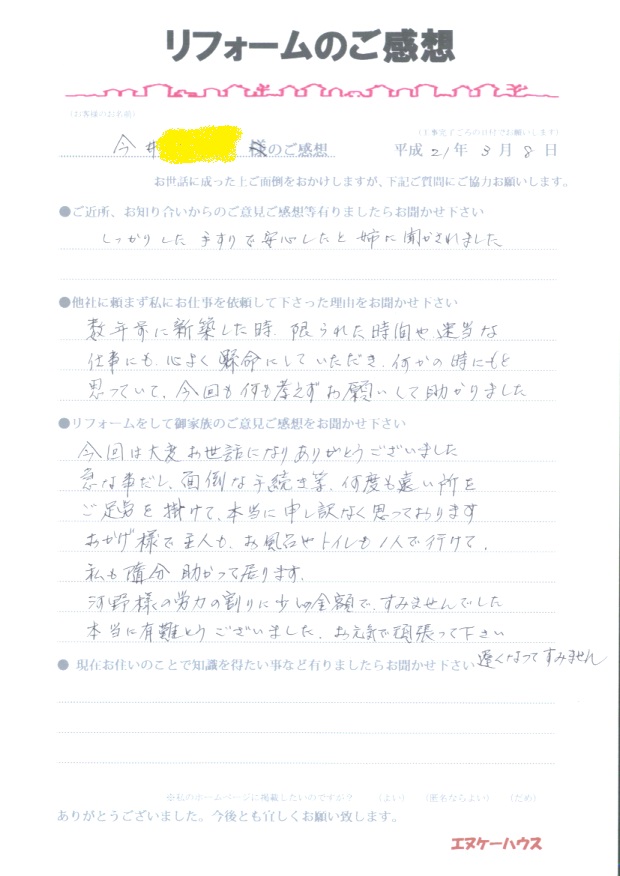 リフォームのご感想
（お客様のお名前）
（工事完了ごろの日付でお願いします）
今井 様のご感想 平成21年3月8日
お世話に成った上ご面倒をおかけしますが、下記ご質問にご協力お願いします。
●ご近所、お知り合いからのご意見ご感想等有りましたらお聞かせ下さい
しっかりした手すりで安心したと姉に聞かされました
●他社に頼まず私にお仕事を依頼して下さった理由をお聞かせ下さい
数年前に新築した時、限られた時間や
仕事にも、心よく懸命にしていただき、何かの時にもと
思っていて、今回も何も考えずお願いして助かりました
●リフォームをして御家族のご意見ご感想をお聞かせ下さい
今回は大変お世話になりありがとうございました
急な事だし、面倒な手続き等、何度も遠い所を
ご足労を掛けて、本当に申し訳なく思っております
おかげ様で主人も、お風呂やトイレも1人で行けて、
私も随分助かって居ります。
河野様の労力の割りに少しの金額で、すみませんでした
本当に有難とうございました。お元気で頑張って下さい
●現在お住いのことで知識を得たい事など有りましたらお聞かせ下さい
遅くなってすみません
※私のホームページに掲載したいのですが？ （よい） （匿名ならよい） （だめ）
ありがとうございました。今後とも宜しくお願い致します。
エヌケーハウス